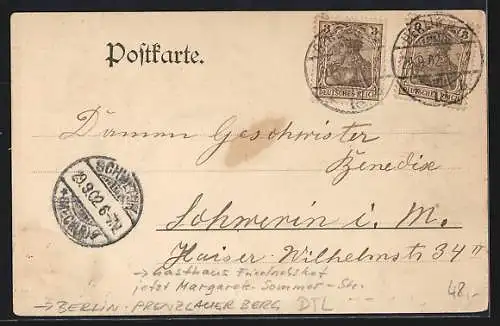 Postkarte.
3 3
DEUTSCHES REICH
BERLIN
9.02
DEUTSCHES REICH
Damen Geschwister
Benedix
Schwerin i. M.
Kaiser-Wilhelmstr 34 II
SCHWERIN
29.9.02.6-7N.
→ Gasthaus Friedrichshof
jetzt Margarete-Sommer-Str.
→ BERLIN-PRENZLAUER BERG DTL
48,-